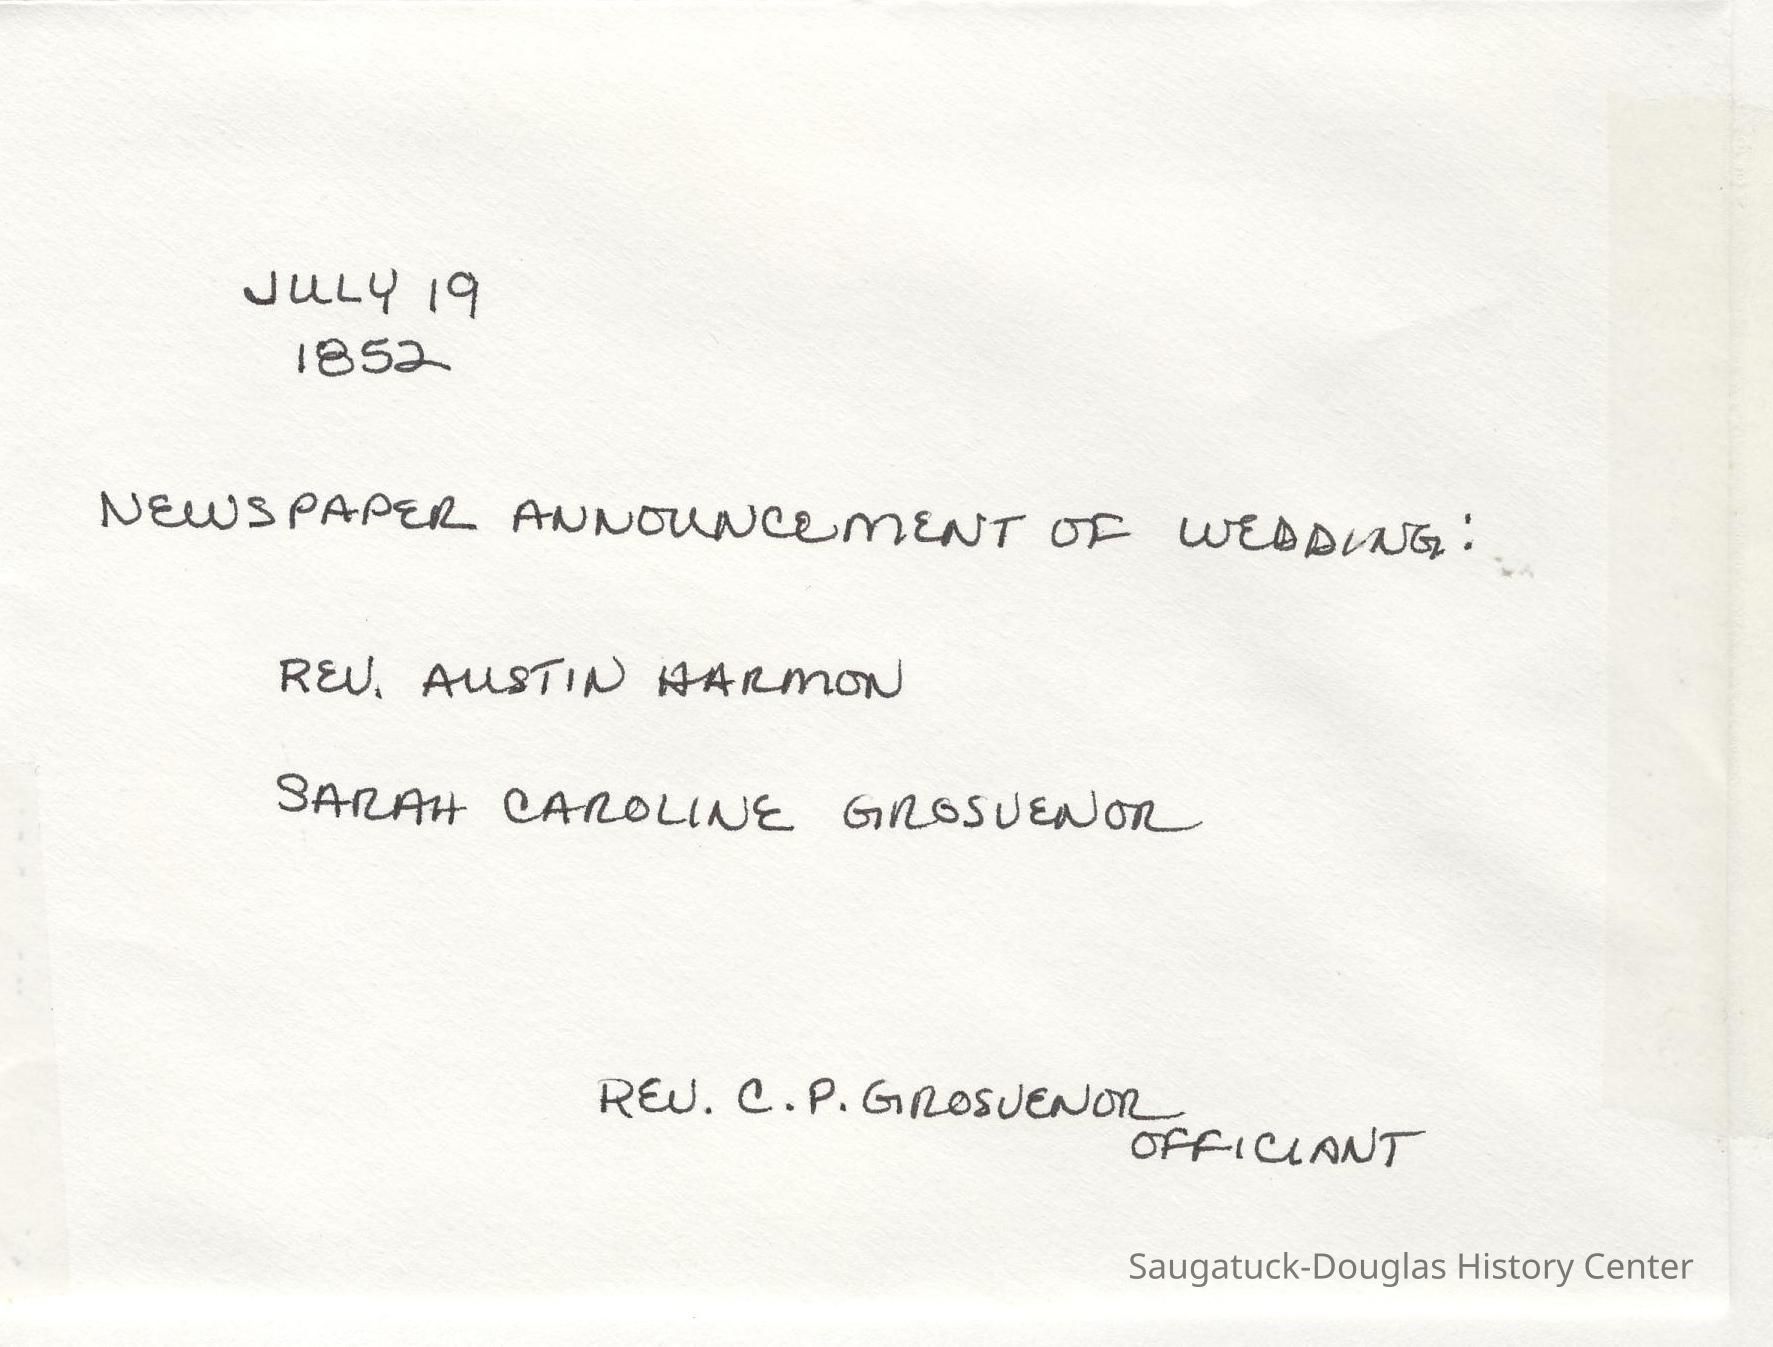 JULY 19
1852
NEWSPAPER ANNOUNCEMENT OF WEDDING:
REV. AUSTIN HARMON
SARAH CAROLINE GROSVENOR
REV. C. P. GROSVENOR
OFFICIANT
Saugatuck-Douglas History Center